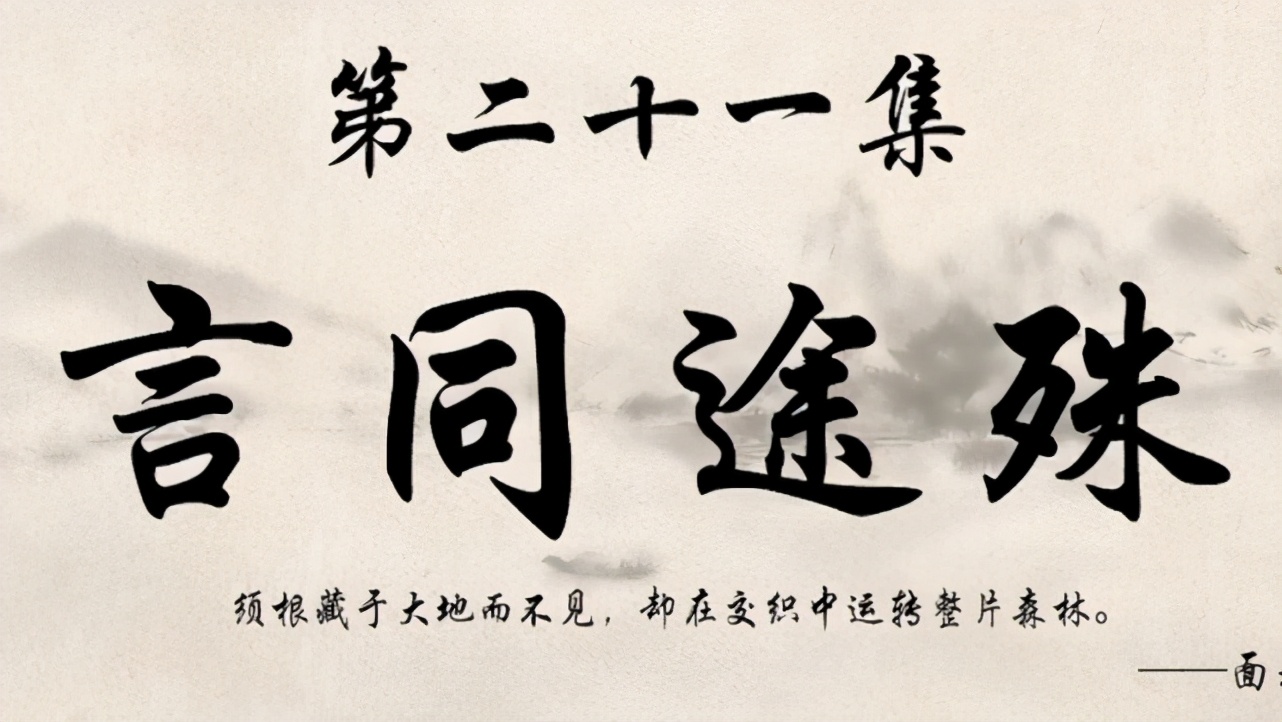 第二十一集
言同途殊
须根藏于大地而不见，却在交织中运转整片森林。
——面